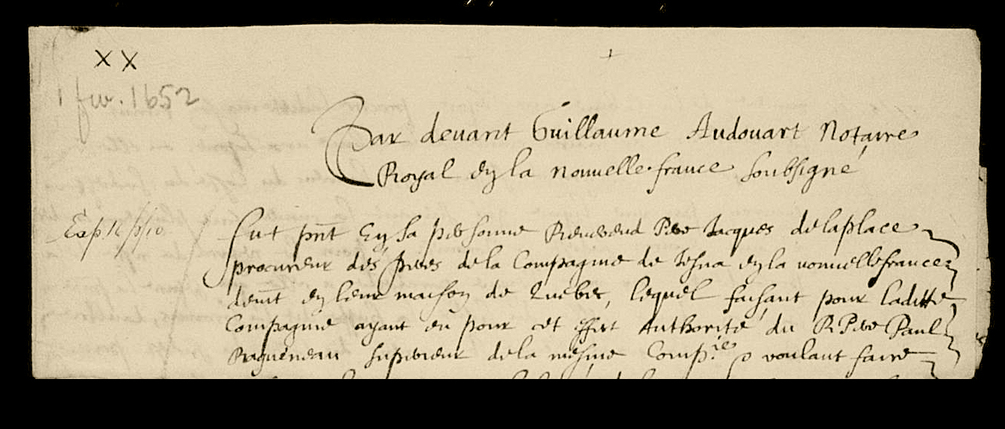 x x
1 fev. 1652
Par devant Guillaume Audouart Notaire
Royal en la nouvelle france soubsigné
Fut pnt en sa personne Reverend Pere Jacques de laplace
procureur des peres de la Compagnie de Jesus en la nouvellefrance
demt en leur maison de Quebec, lequel faisant pour laditte
Compagnie ayant eu pour cet effect Authorité du R Pere Paul
Ragueneau superieur de la mesme Compnie voulant faire